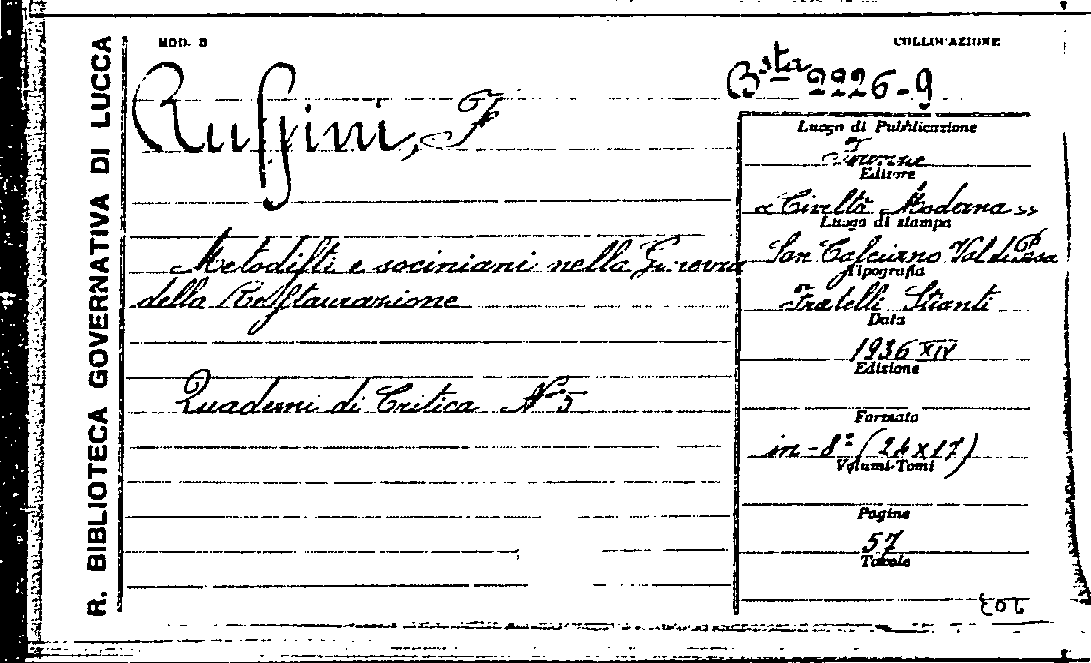 R. BIBLIOTECA GOVERNATIVA DI LUCCA
MOD. B
COLLOCAZIONE
Bsta 2226-9
Ruffini, F
Metodisti e sociniani nella Ginevra
della Restaurazione
Quaderni di Critica N° 5
Luogo di Pubblicazione
Firenze
Editore
«Civeltà Moderna»
Luogo di stampa
San Casciano Val di Pesa
Tipografia
Fratelli Stianti
Data
1936 XIV
Edizione
Formato
in-8° (24x17)
Volumi-Tomi
Pagine
57
Tavole